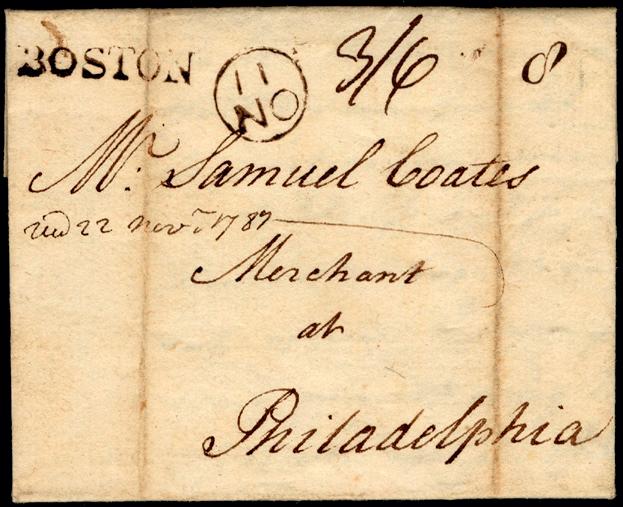 BOSTON 11 NO 3/6 8
Mr. Samuel Coates
recd 22 novr 1787
Merchant
at
Philadelphia